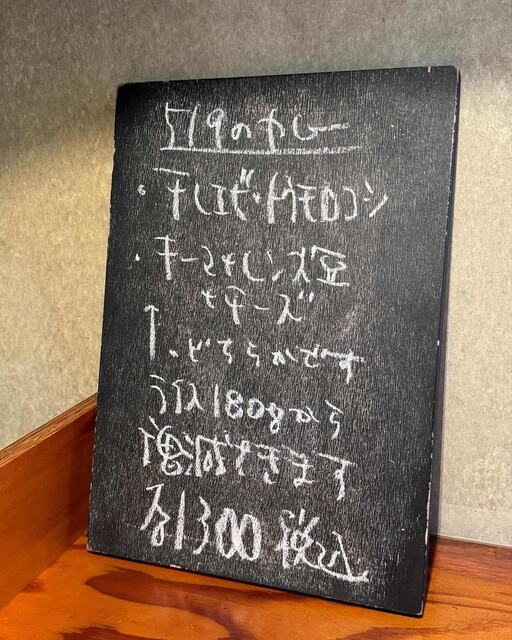 5/9のカレー
・干しエビ・トウモロコシ
・キーマ+レンズ豆
+チーズ
↑・どちらかです
ライス180gから
増減できます
各1300税込